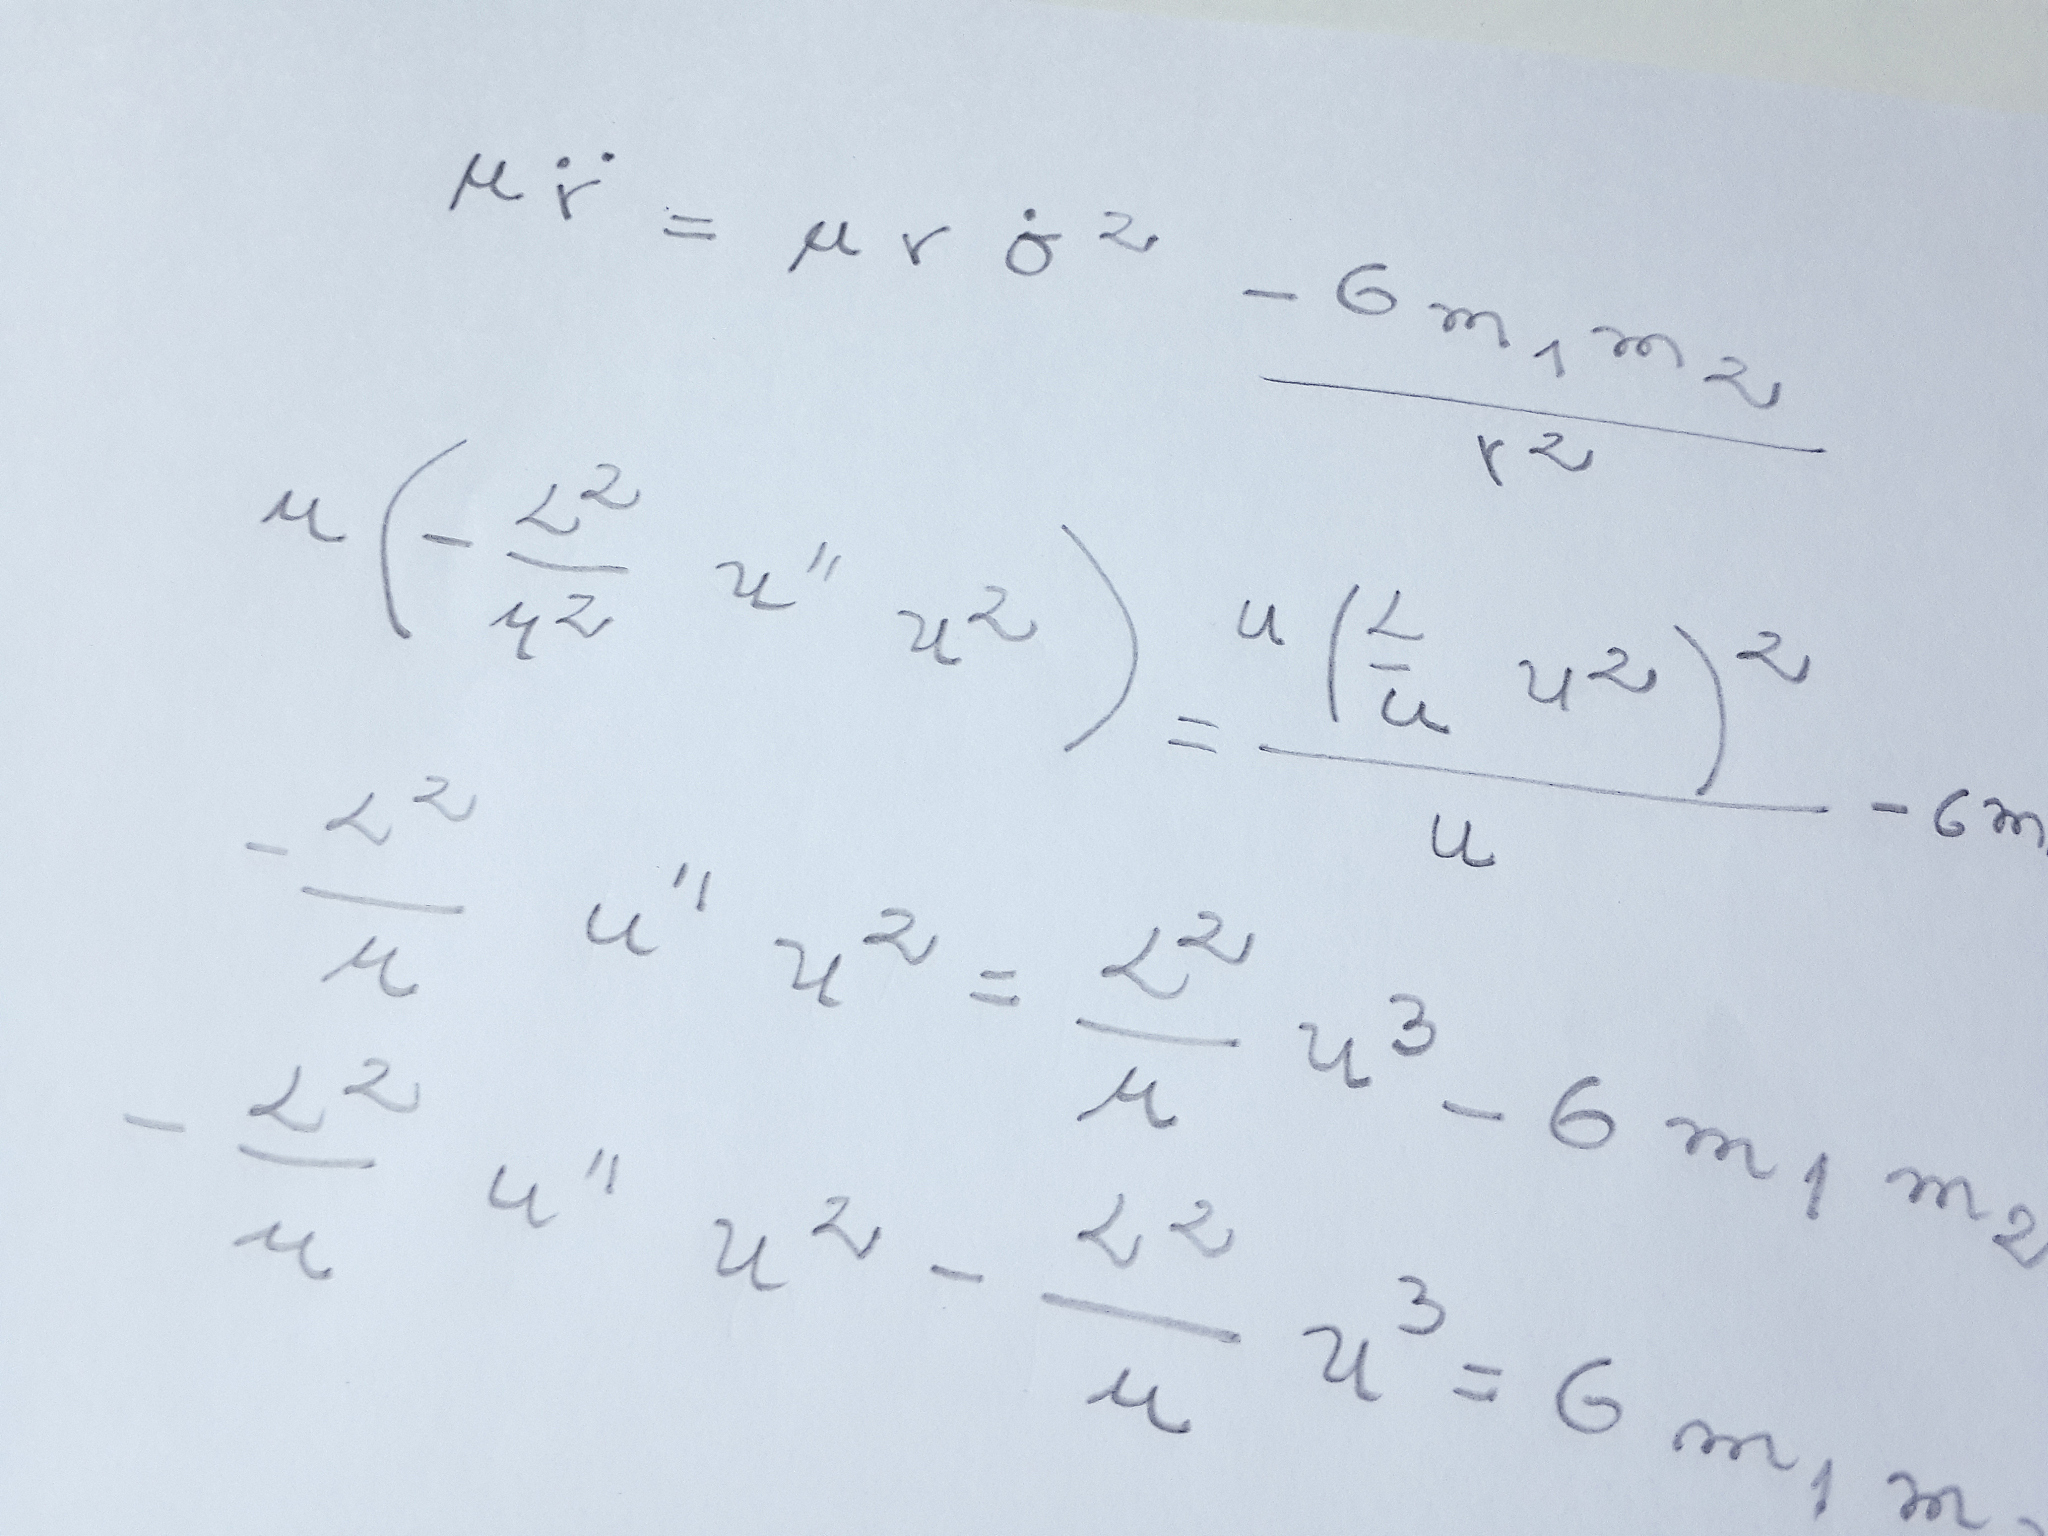 μ r̈ = μ r σ̇ ² - G m₁ m₂ / r²
μ ( - L² / μ² u'' u² ) = μ ( L / μ u² )² / u - G m
- L² / μ u'' u² = L² / μ u³ - G m₁ m₂
- L² / μ u'' u² - L² / μ u³ = G m₁ m